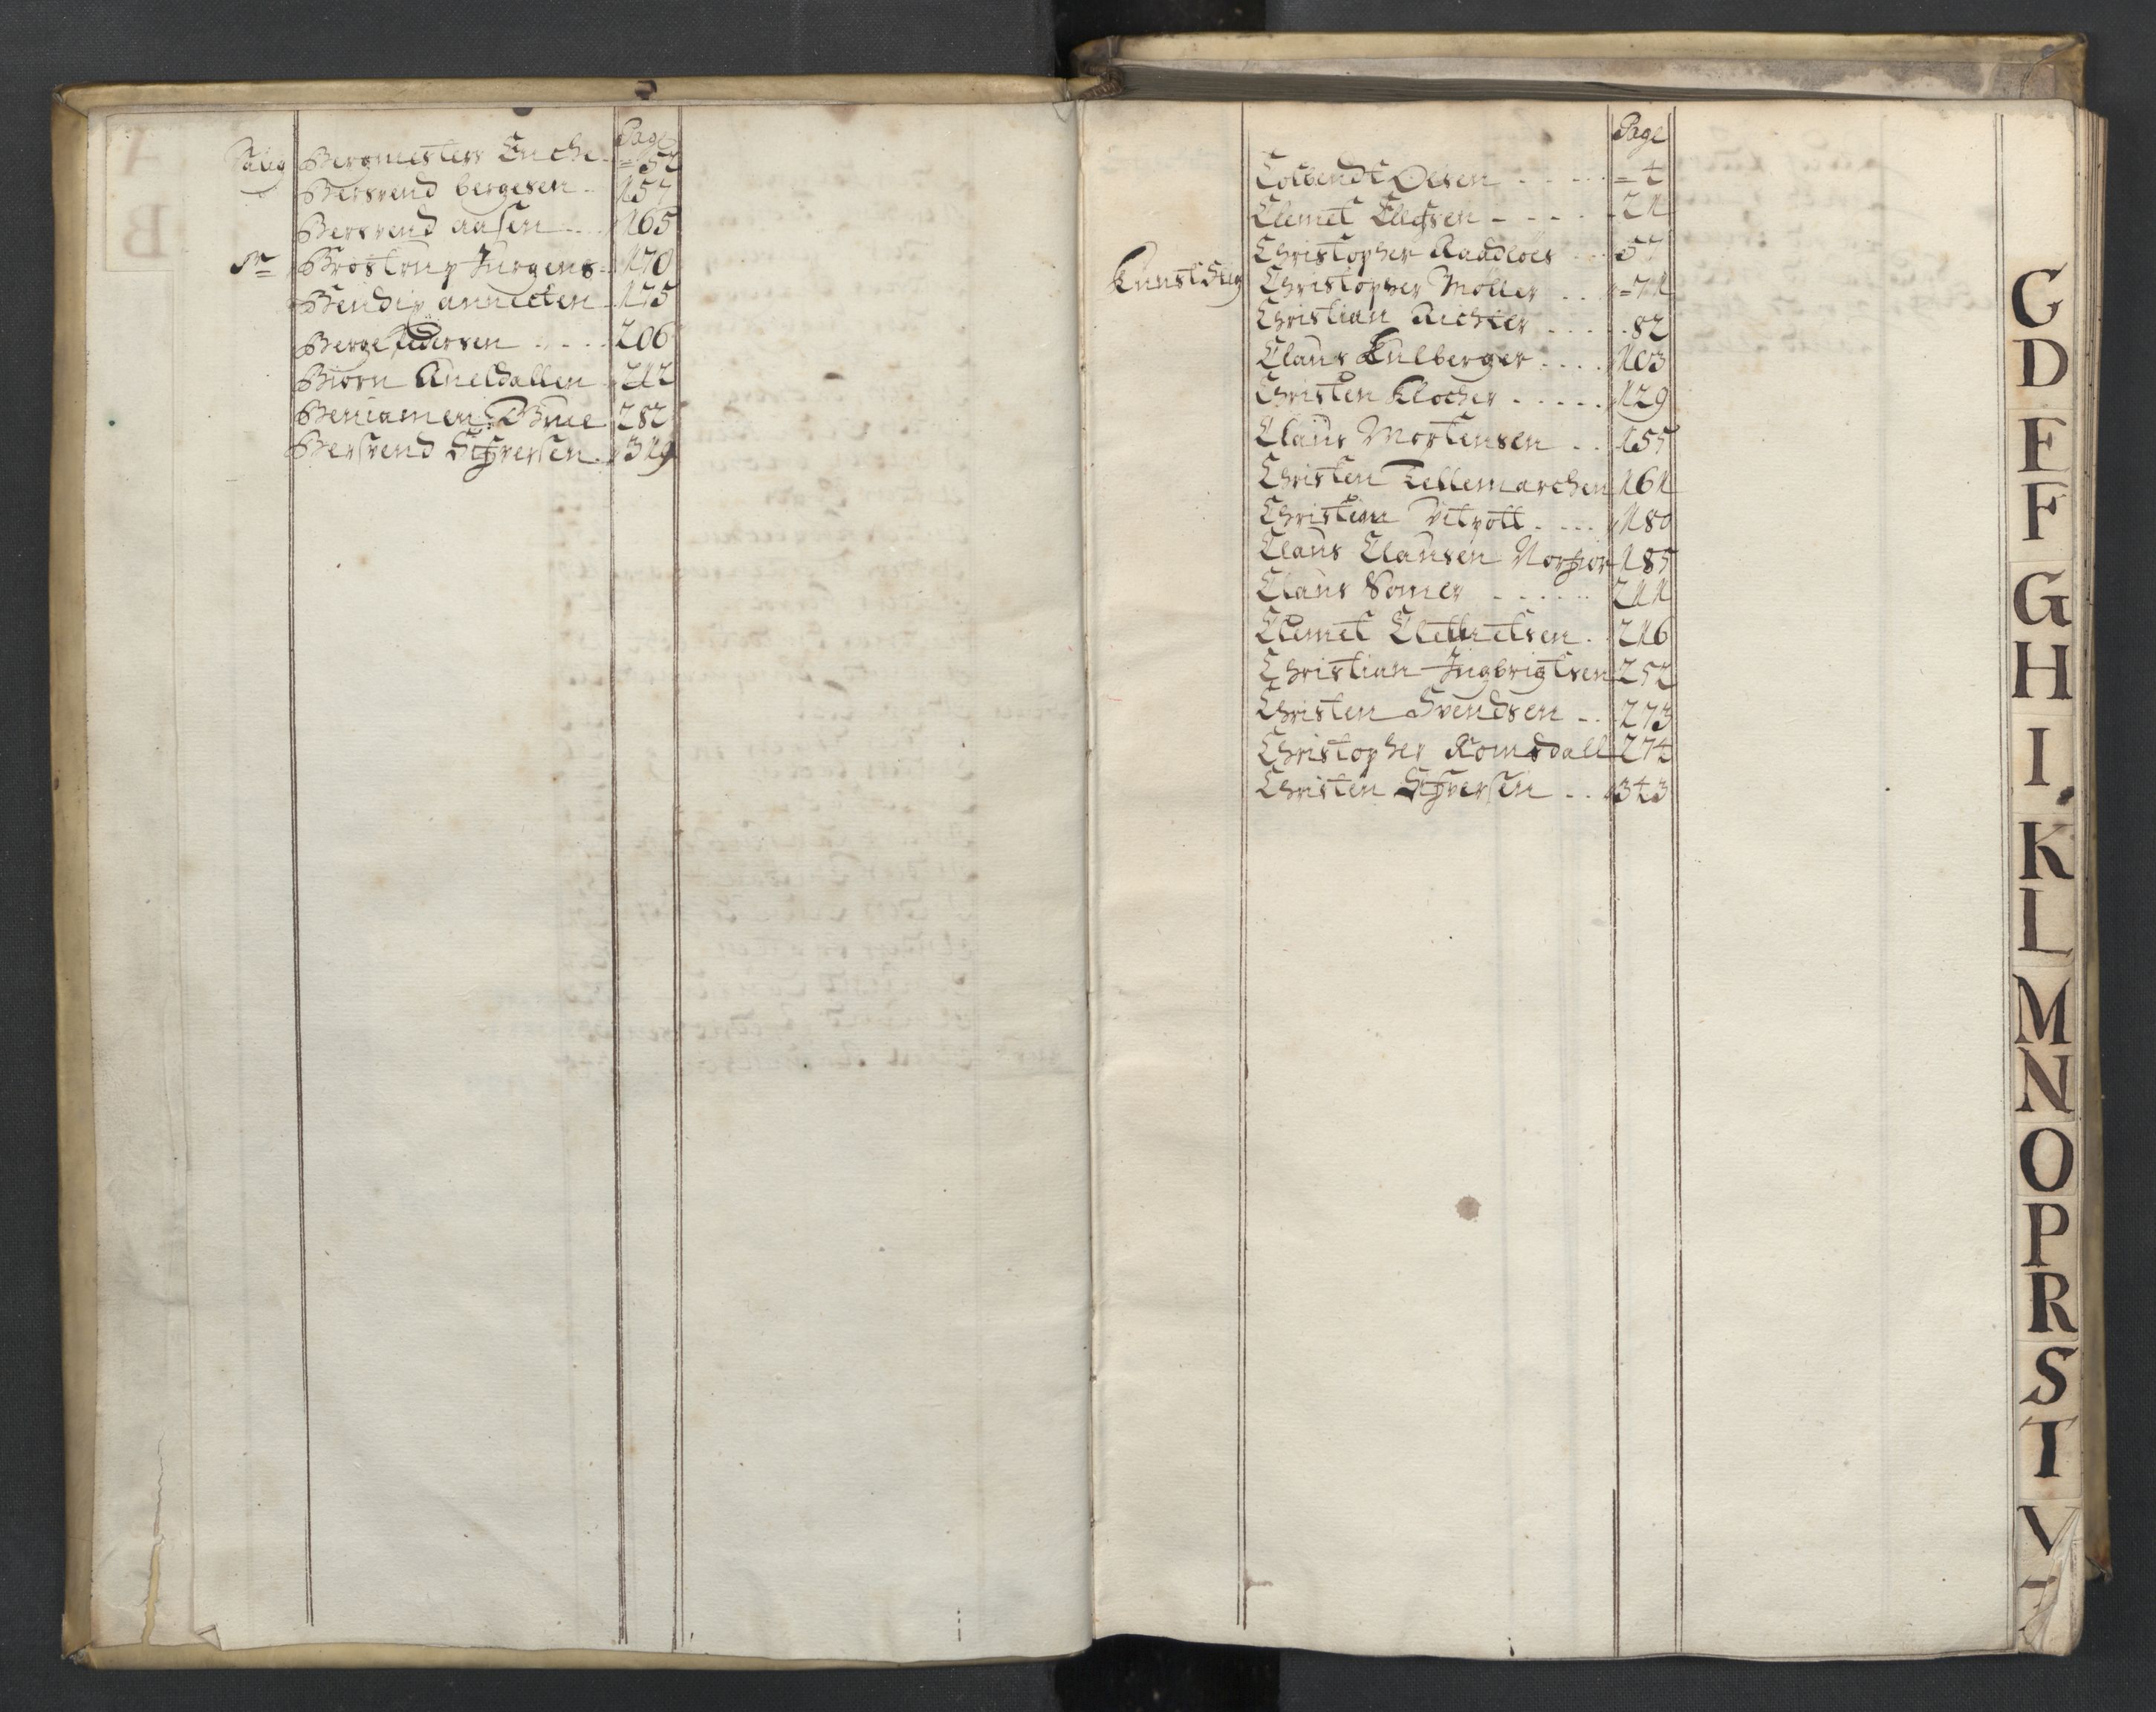 Page
Salig Bergmester Enche = 52
Bersvend bergesen .. 157
Bersvend aasen ... 165
Sr Brostrup Jurgens . 170
Bendix annecken . 175
Berge Pedersen .... 206
Biørn Kueldallen 212
Beniamen Brue 282
Bersvend Sifversen . 319
Page
Colbendt Olesen ..... = 4
Clemet Ellefsen ..... 21
Christopher Raadloes ... 57
Kunstskrig Christopher Moller .. = 71
Christian Richter ..... 82
Claus Kulberger .... 103
Christen Klocker ..... 129
Claus Mortensen .. 155
Christen Tellemarchen 161
Christian Vitpott .... 180
Claus Clausen Norfior 185
Claus Somer ...... 211
Clemet Clemetsen . 216
Christian Ingbrigtsen 252
Christen Svendsen .. 273
Christopher Romsdall 274
Christen Sifversen .. 343
G
D
E
F
G
H
I
K
L
M
N
O
P
R
S
T
V